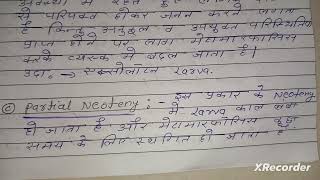 से परिपक्व होकर जनन करने लगता
है किन्तु अनुकूल व उपयुक्त परिस्थितियाँ
प्राप्त होने पर लार्वा मेटामारफोसिस
करके व्यस्क में बदल जाता है।
उदा० :- एक्सोलोटल Larva.
© Partial Neoteny :- इस प्रकार के Neoteny
में Larva काल लम्बा
हो जाता है और मेटामारफोसिस कुछ
समय के लिए स्थगित हो जाता है
XRecorder